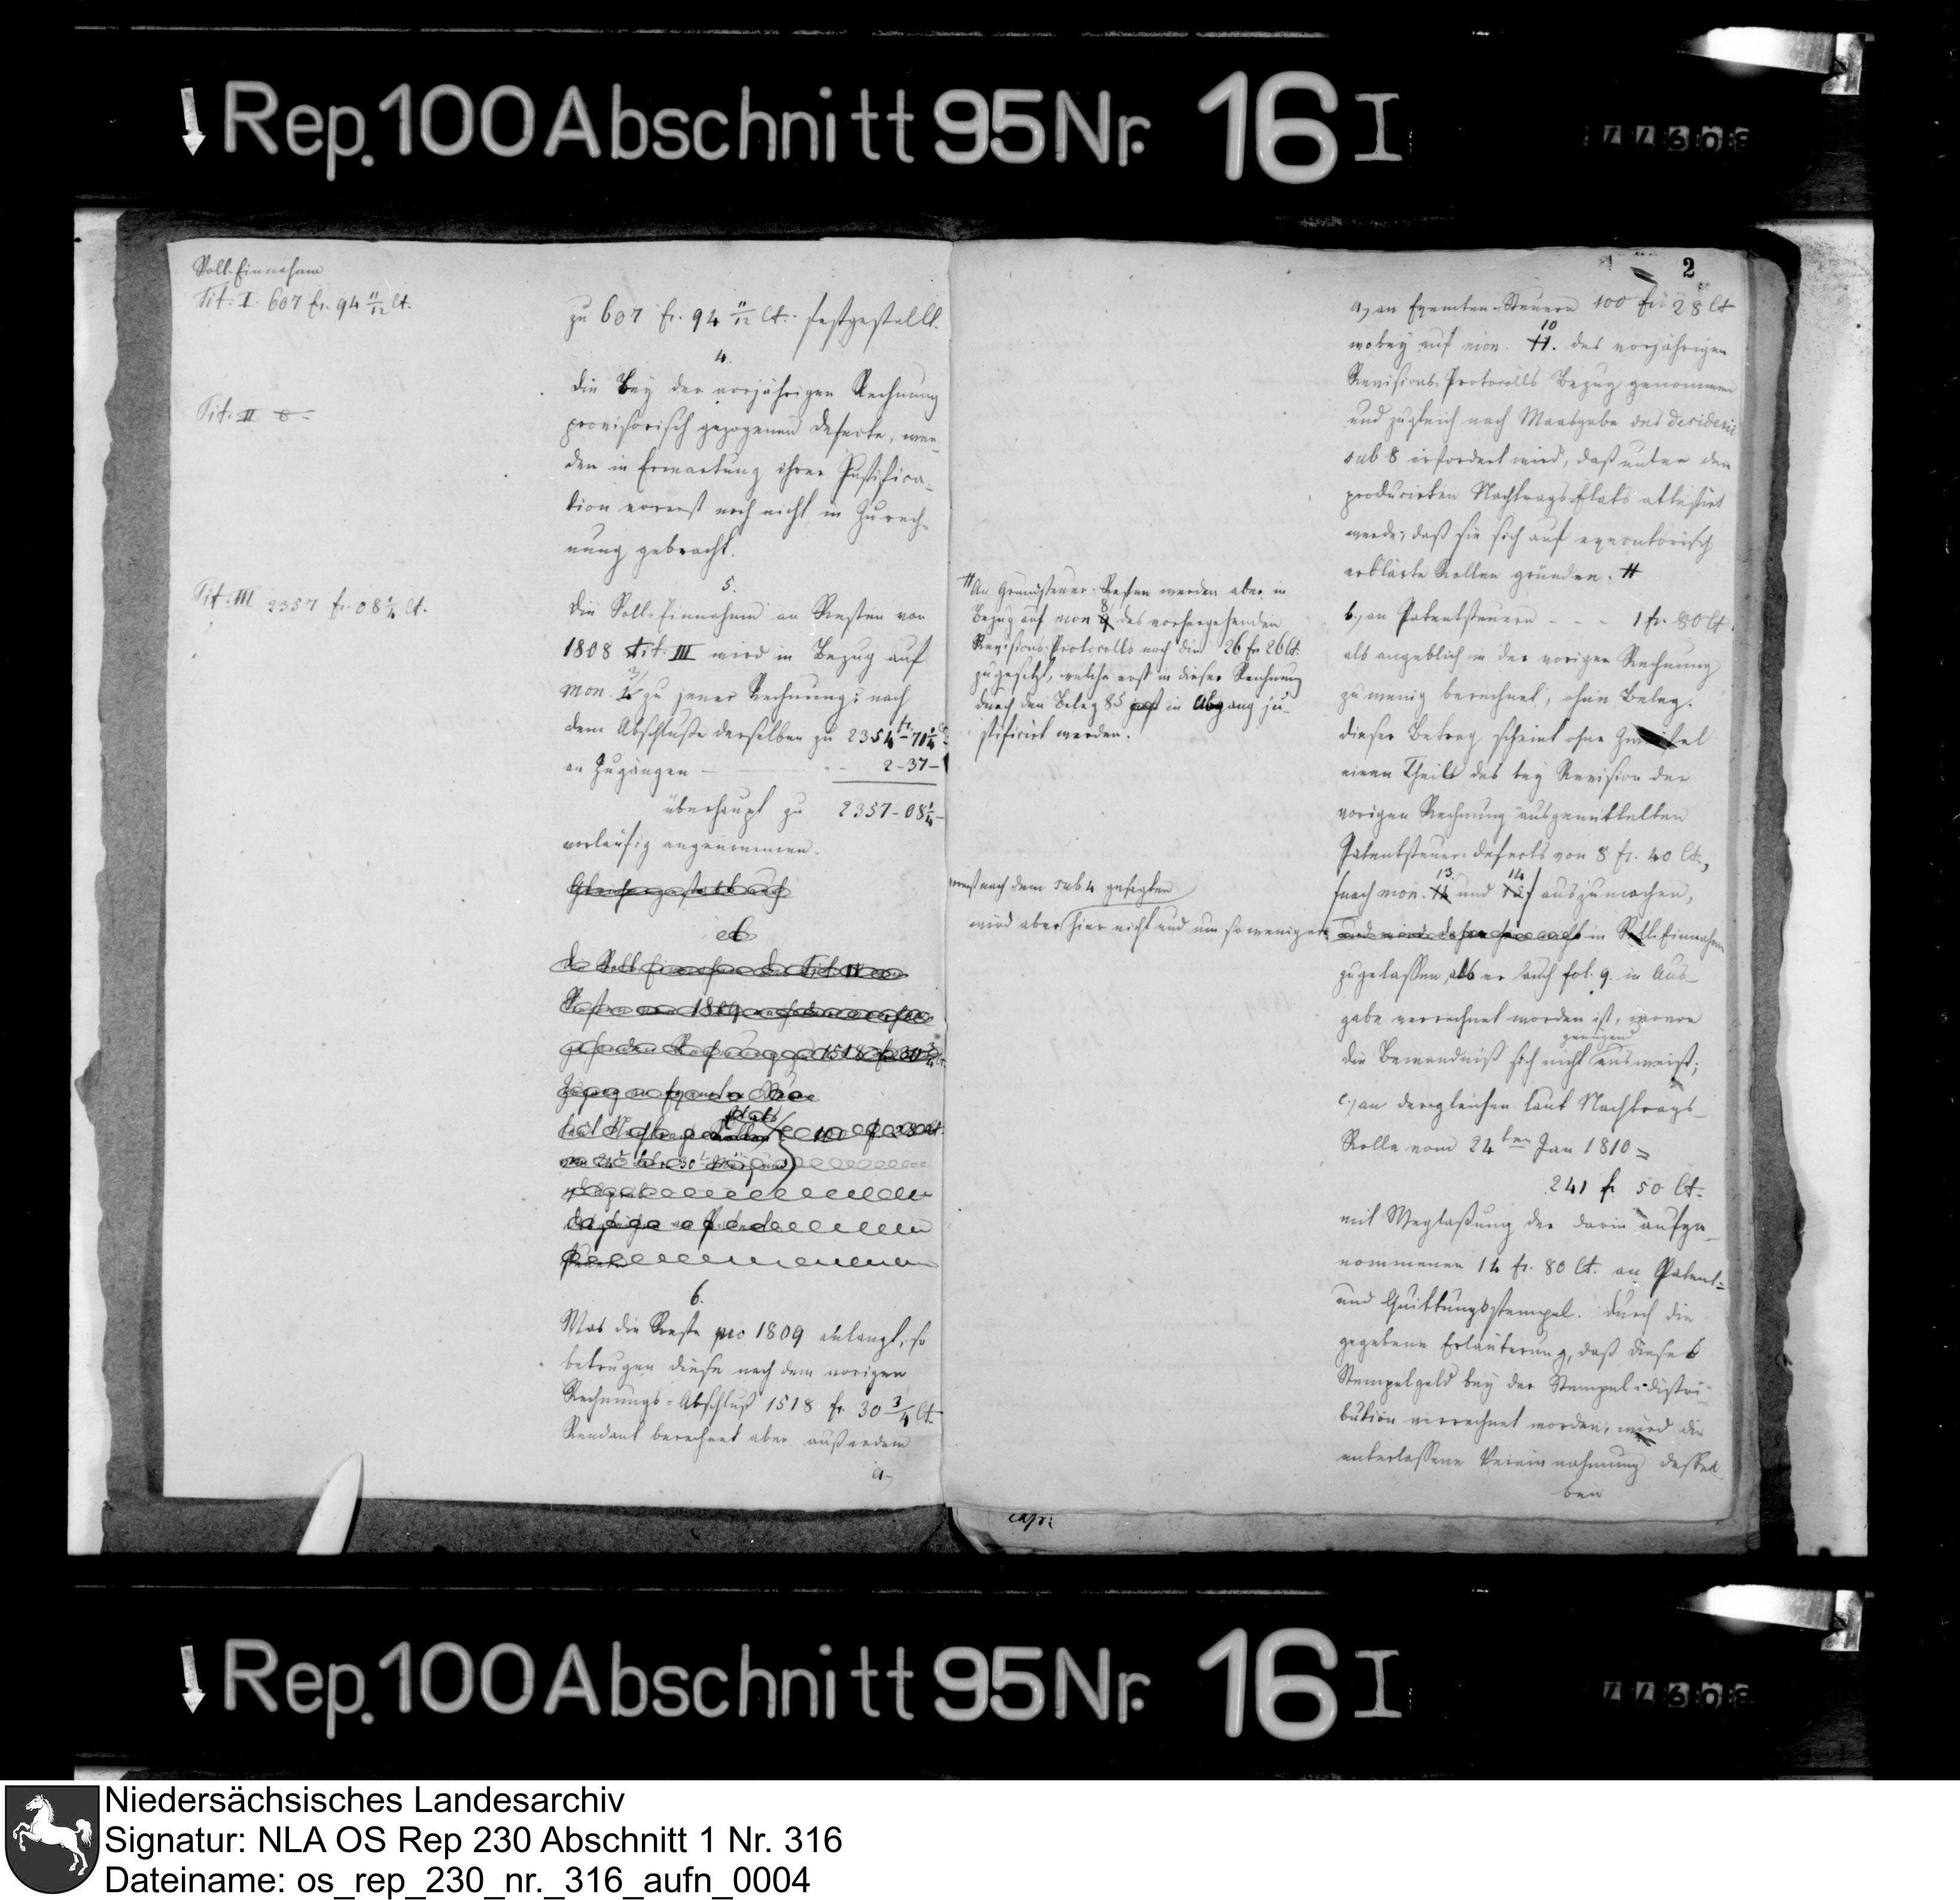 Rep. 100 Abschnitt 95 Nr. 16 I
Soll-Einnahme
Tit. I. 607 fr. 94 11/12 Ct.
Tit. II 0 -
Tit. III 2357 fr. 08 1/4 Ct.
zu 607 fr. 94 11/12 Ct. festgestellt.
4.
Die Bey der vorjährigen Rechnung
provisorisch gezogenen Defecte, wer-
den in Erwartung ihrer Justifica-
tion vorerst noch nicht in Zurech-
nung gebracht.
5.
Die Soll-Einnahme an Resten von
1808 Tit. III wird in Bezug auf
mon. 3/ zu jener Rechnung; nach
dem Abschluße derselben zu 2354 fr. 71 1/4
an Zugängen - 2-37-
überhaupt zu 2357-08 1/4-
vorläufig angenommen.
6.
Was die Reste pro 1809 anlangt, so
betrugen diese nach dem vorigen
Rechnungs-Abschluß 1518 fr. 30 3/4 Ct.
Rendant berechnet aber außerdem
a,
# An Grundsteuer-Resten werden aber in
Bezug auf mon 8 des vorhergehenden
Revisions-Protocolls noch die 26 fr 26 Ct.
zugesetzt, welche erst in dieser Rechnung
durch den Beleg 85 in Abgang ju-
stificirt werden.
nach dem sub 4 gesagten
wird aber hier nicht und um so weniger
2
a, an Exemten-Steuern 100 fr. 28 Ct
wobey auf mon. 10 des vorjährigen
Revisions-Protocolls Bezug genommen
und zugleich nach Maasgabe des desiderii
sub 8 erfordert wird, daß unter den
producirten Nachtrags-Etats attestirt
werde, daß sie sich auf executorisch
erklärte Rollen gründen. #
b, an Patentsteuern - - - 1 fr. 80 Ct.
als angeblich in der vorigen Rechnung
zu wenig berechnet, ohne Beleg.
dieser Betrag scheint ohne Zweifel
einen Theil des bey Revision der
vorigen Rechnung ausgemittelten
Patentsteuer-defects von 8 fr. 40 Ct.,
(nach mon. 13. und 14) auszumachen,
in Soll-Einnahme
zugelassen, als er auch fol. 9. in Aus-
gabe verrechnet worden ist, wovon
die Bewandniß sich nicht genügend ausweist;
c, an dergleichen laut Nachtrags-
Rolle vom 24ten Jan 1810 =
241 fr 50 Ct.
mit Weglaßung der darin aufge-
nommenen 14 fr. 80 Ct. an Patent-
und Quittungsstempel. Durch die
gegebene Erläuterung, daß dieses
Stempelgeld bey der Stempel-distri-
bution verrechnet worden, wird die
unterlassene Vereinnahmung dessel-
ben
Rep. 100 Abschnitt 95 Nr. 16 I
Niedersächsisches Landesarchiv
Signatur: NLA OS Rep 230 Abschnitt 1 Nr. 316
Dateiname: os_rep_230_nr._316_aufn_0004